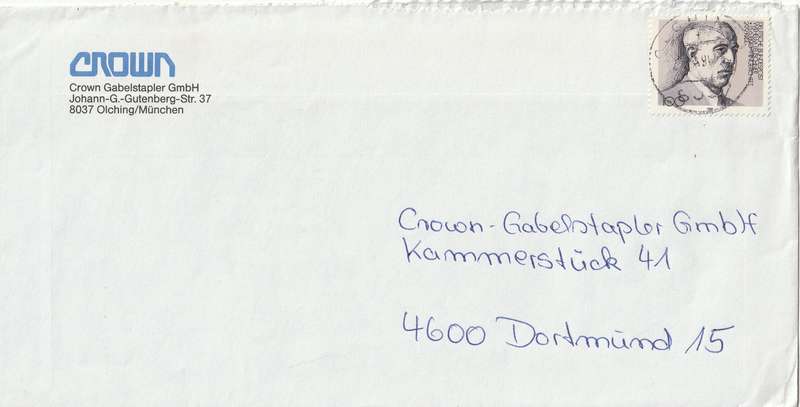 CROWN
Crown Gabelstapler GmbH
Johann-G.-Gutenberg-Str. 37
8037 Olching/München
Crown-Gabelstapler GmbH
Kammerstück 41
4600 Dortmünd 15